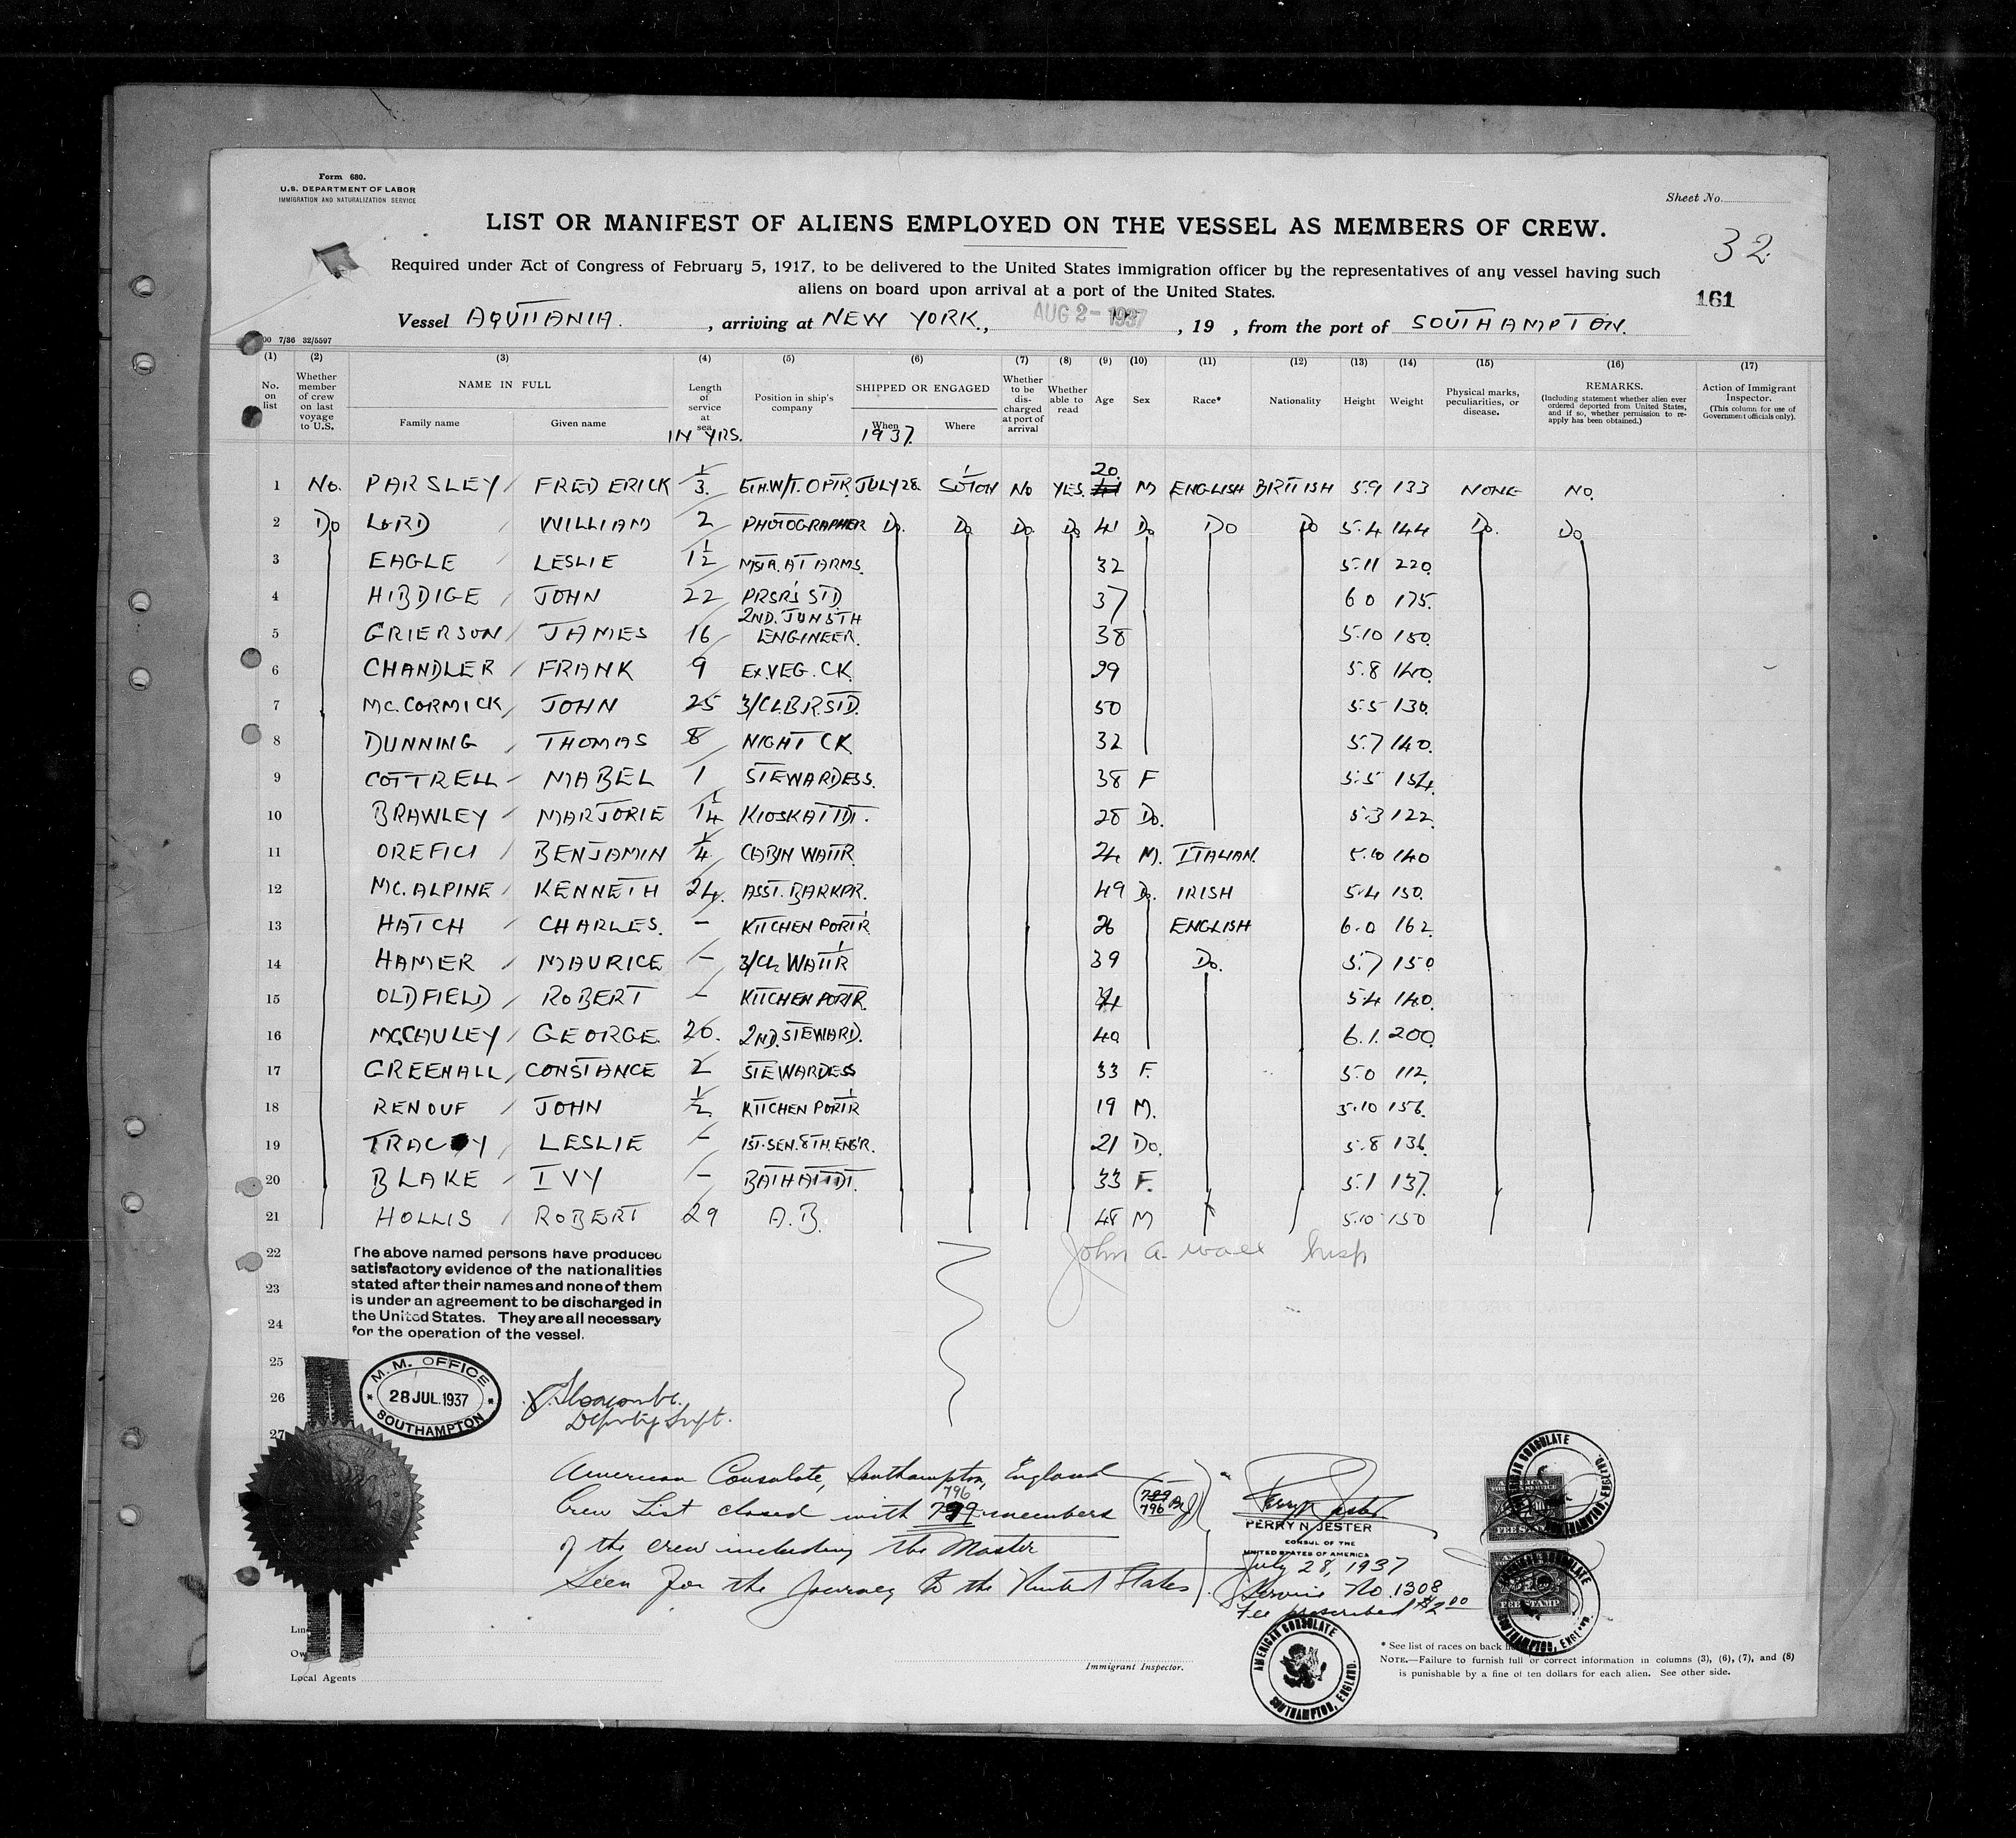 Form 680.
U.S. DEPARTMENT OF LABOR
IMMIGRATION AND NATURALIZATION SERVICE
Sheet No.
LIST OR MANIFEST OF ALIENS EMPLOYED ON THE VESSEL AS MEMBERS OF CREW.
32
Required under Act of Congress of February 5, 1917, to be delivered to the United States immigration officer by the representatives of any vessel having such
aliens on board upon arrival at a port of the United States.
161
Vessel AQUITANIA. , arriving at NEW YORK., AUG 2-1937 , 19 , from the port of SOUTHAMPTON.
00 7/36 32/5597
(1) (2) (3) (4) (5) (6) (7) (8) (9) (10) (11) (12) (13) (14) (15) (16) (17)
No. on list
Whether member of crew on last voyage to U.S.
NAME IN FULL
Family name Given name
Length of service at sea
IN YRS.
Position in ship's company
SHIPPED OR ENGAGED
When Where
1937.
Whether to be discharged at port of arrival
Whether able to read
Age Sex Race* Nationality Height Weight
Physical marks, peculiarities, or disease.
REMARKS.
(Including statement whether alien ever ordered deported from United States, and if so, whether permission to re-apply has been obtained.)
Action of Immigrant Inspector.
(This column for use of Government officials only).
1 No. PARSLEY / FREDERICK 1/3. 6TH.W/T.OPTR. JULY 28 S'OTON NO YES. 20 M ENGLISH BRITISH 5.9 133 NONE NO.
2 Do LORD / WILLIAM 2 PHOTOGRAPHER Do. Do. Do. Do 41 Do. Do Do 5.4 144 Do. Do
3 EAGLE / LESLIE 1 1/2 MSTR. AT ARMS. 32 5.11 220.
4 HIBDIGE / JOHN 22 PRSR'S STD. 37 6 0 175.
5 GRIERSON / JAMES 16 2ND. JUN 5TH ENGINEER. 38 5.10 150.
6 CHANDLER / FRANK 9 EX.VEG. CK. 29 5.8 140.
7 MC.CORMICK / JOHN 25 3/CL.B.R.STD. 50 5.5 130.
8 DUNNING / THOMAS 8 NIGHT CK. 32 5.7 140.
9 COTTRELL / MABEL 1 STEWARDESS. 38 F 5.5 154.
10 BRAWLEY / MARJORIE 1/14 KIOSK ATTDT. 28 Do. 5.3 122.
11 OREFICI / BENJAMIN 1/4 CABIN WAITR. 24 M. ITALIAN. 5.10 140
12 MC.ALPINE / KENNETH 24. ASST. BARKPR. 49 Do. IRISH 5.4 150.
13 HATCH / CHARLES. - KITCHEN PORT'R. 26 ENGLISH 6.0 162.
14 HAMER / MAURICE - 3/CL. WAIT'R 39 Do. 5.7 150.
15 OLDFIELD / ROBERT - KITCHEN PORTR. 5.4 140.
16 MC.CAULEY / GEORGE. 20. 2ND. STEWARD. 40 6.1. 200.
17 GREENALL / CONSTANCE 2 STEWARDESS 33 F. 5.0 112.
18 RENOUF / JOHN 1/2 KITCHEN PORT'R 19 M. 5.10 156.
19 TRACY / LESLIE - 1ST.SEN. 8TH. ENG'R. 21 Do. 5.8 136.
20 BLAKE / IVY - BATH ATTDT. 33 F. 5.1 137.
21 HOLLIS / ROBERT 29 A.B. 48 M 5.10 150
22 John A. Wall Insp
23
24
25
26
27
The above named persons have produced
satisfactory evidence of the nationalities
stated after their names and none of them
is under an agreement to be discharged in
the United States. They are all necessary
for the operation of the vessel.
M. M. OFFICE
28 JUL. 1937
SOUTHAMPTON
Deputy Supt.
American Consulate, Southampton, England
796
Crew List closed with 799 members
799
796
of the crew including the Master
Seen for the Journey to the United States
PERRY N. JESTER
CONSUL OF THE
UNITED STATES OF AMERICA
July 28, 1937
Service No. 1308
Fee prescribed $2.00
AMERICAN CONSULATE
SOUTHAMPTON, ENGLAND.
FEE STAMP
AMERICAN CONSULATE
SOUTHAMPTON, ENGLAND.
FEE STAMP
AMERICAN CONSULATE
SOUTHAMPTON, ENGLAND.
Local Agents
Immigrant Inspector.
* See list of races on back
NOTE.—Failure to furnish full or correct information in columns (3), (6), (7), and (8)
is punishable by a fine of ten dollars for each alien. See other side.